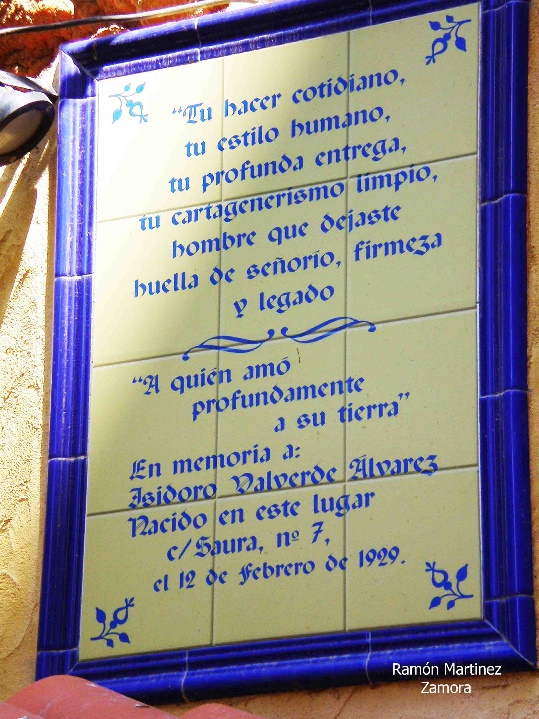 “Tu hacer cotidiano,
tu estilo humano,
tu profunda entrega,
tu cartagenerismo limpio,
hombre que dejaste
huella de señorío, firmeza
y legado
“A quién amó
profundamente
a su tierra”
En memoria a:
Isidoro Valverde Álvarez
Nacido en este lugar
c/Saura, nº 7,
el 12 de febrero de 1929.
Ramón Martinez
Zamora